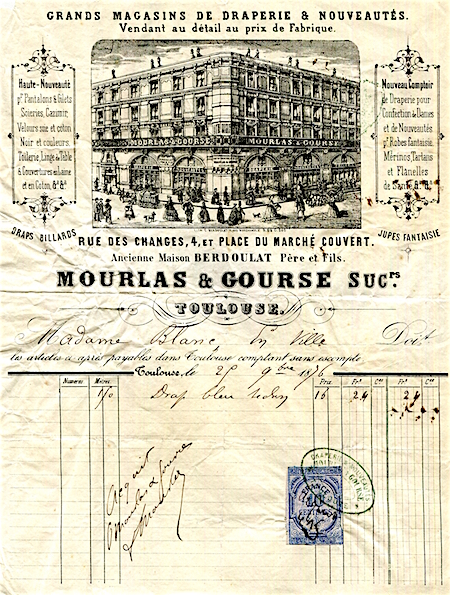 GRANDS MAGASINS DE DRAPERIE & NOUVEAUTÉS.
Vendant au détail au prix de Fabrique.
Haute-Nouveauté
pr Pantalons & Gilets
Soieries, Cazimir,
Velours soie et coton
Noir et couleurs.
Toilerie, Linge de Table
& Couvertures en Laine
et en Coton, &a &a
DRAPS BILLARDS
MOURLAS & GOURSE
MOURLAS & GOURSE
Nouveau Comptoir
de Draperie pour
Confection de Dames
et de Nouveautés
pr Robes Fantaisie,
Mérinos, Tartans
et Flanelles
de Santé &a &a
JUPES FANTAISIE
RUE DES CHANGES, 4, ET PLACE DU MARCHÉ COUVERT.
Ancienne Maison BERDOULAT Père et Fils.
MOURLAS & GOURSE SUCrs
TOULOUSE.
Madame Blanc, En Ville Doit
les articles ci-après payables dans Toulouse comptant sans escompte
Toulouse, le 25 9bre 1876
Numéros Mètres Prix Frs Ces Frs Ces
1/50 Drap bleu 16 24 24
Acquit
Mourlas & Gourse
DRAPERIE NOUVEAUTÉS
GOURSE
10
CENTIMES